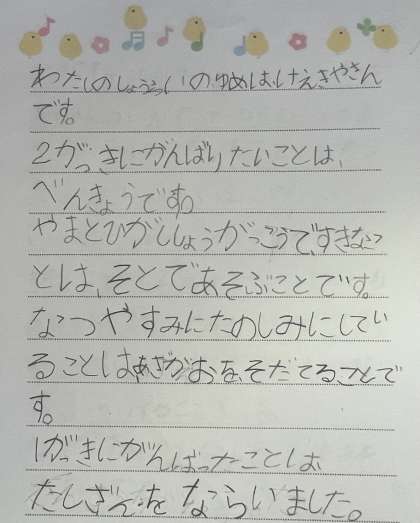 わたしのしょうらいのゆめは、けえきやさん
です。
2がっきにがんばりたいことは、
べんきょうです。
やまとひがししょうがっこうで、すきなこ
とは、そとであそぶことです。
なつやすみにたのしみにしてい
ることはあさがおをそだてることで
す。
1がっきにがんばったことは
たしざんをならいました。